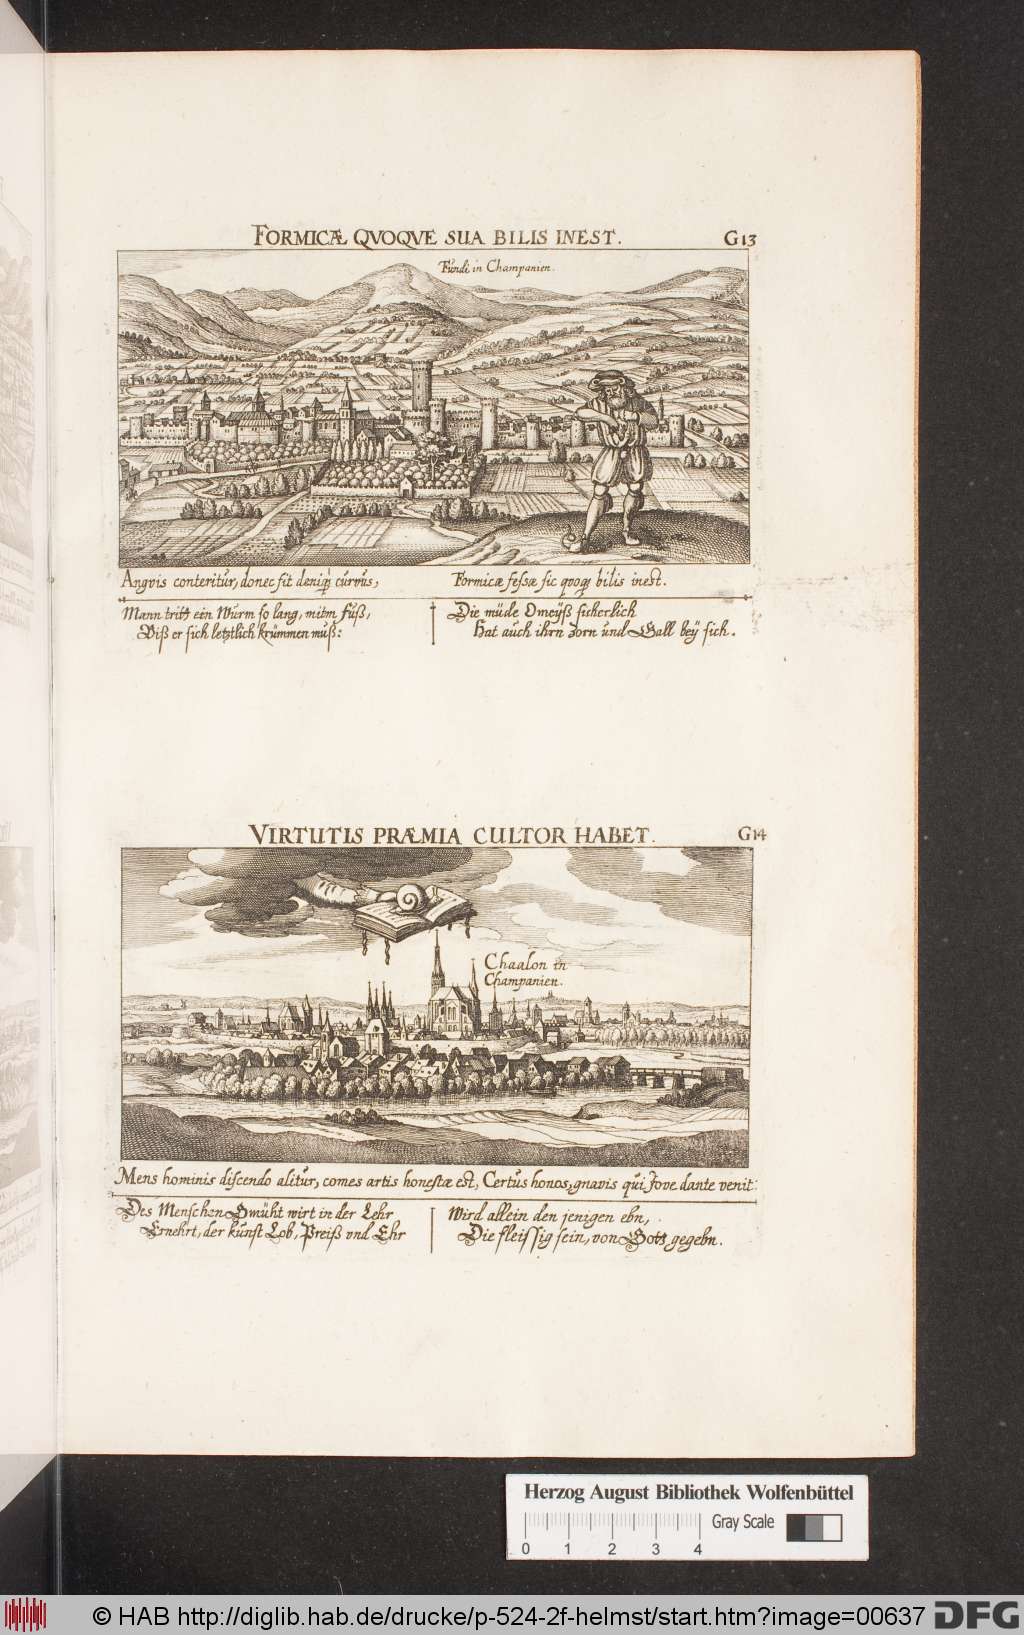 FORMICÆ QVOQVE SUA BILIS INEST.
G13
Fundi in Champanien.
Angvis conteritur, donec sit deniqȝ curvus,
Formicæ fessæ sic qvoqȝ bilis inest.
Mann tritt ein Wurm so lang, mitm fuß,
Biß er sich letztlich krümmen muß:
Die müde Omeÿß sicherlich
Hat auch ihrn zorn und Gall beÿ sich.
VIRTUTIS PRÆMIA CULTOR HABET.
G14
Chaalon in
Champanien.
Mens hominis discendo alitur, comes artis honestæ est, Certus honos, gnavis qui Jove dante venit.
Des Menschen Gmüht wirt in der Lehr
Ernehrt, der kunst Lob, Preiß vnd Ehr
Wird allein den jenigen ebn,
Die fleissig sein, von Gott gegebn.
Herzog August Bibliothek Wolfenbüttel
Gray Scale
0 1 2 3 4
© HAB http://diglib.hab.de/drucke/p-524-2f-helmst/start.htm?image=00637
DFG